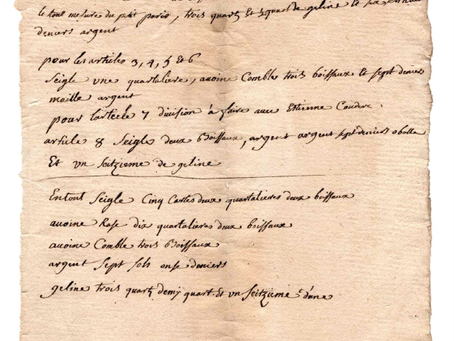 le tout mesure du puy parés, trois quarts et quart de geline et
deniers argent
pour les articles 3, 4, 5 & 6
Seigle une quartaliere, avoine Comble trois boissaux et sept deniers
maille argent
pour larticle 7 division à faire avec Etienne
article 8 Seigle deux Boissaux, argent argent sept deniers obolle
Et un seitzieme de geline
En tout Seigle Cinq Cartes deux quartalieres deux boissaux
avoine Rase dix quartalieres deux boissaux
avoine Comble trois Boissaux
argent Sept sols onse deniers
geline trois quarts demy quart et un seitzieme d'une